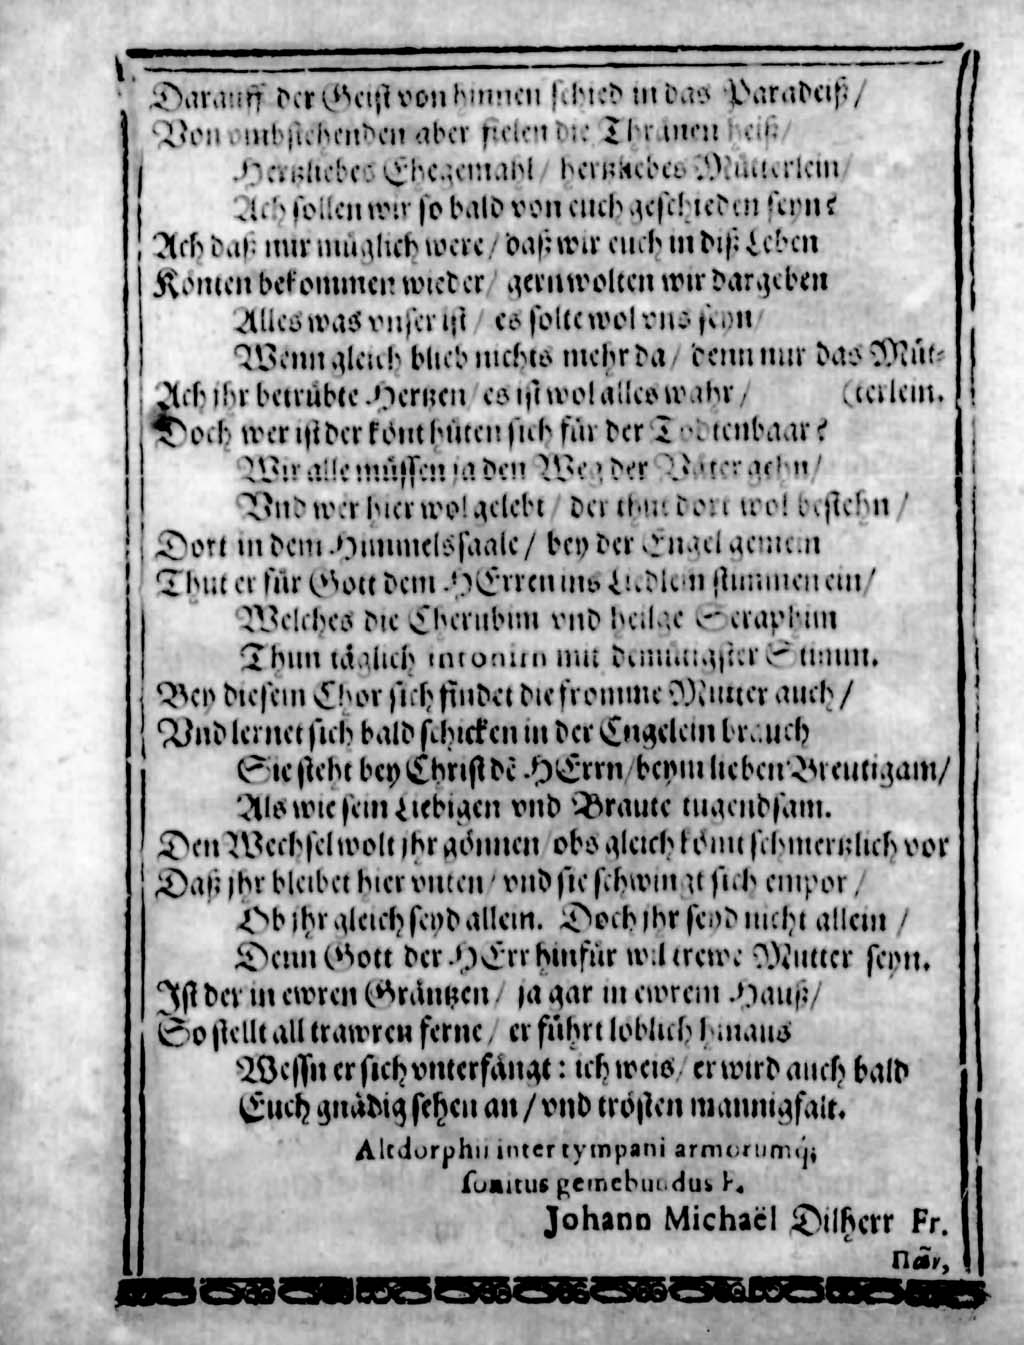 Darauff der Geist von hinnen schied in das Paradeiß /
Von vmbstehenden aber fielen die Thränen heiß /
Hertzliebes Ehegemahl / hertzliebes Mütterlein /
Ach sollen wir so bald von euch geschieden seyn?
Ach daß nur müglich were / daß wir euch in diß Leben
Könten bekommen wieder / gern wolten wir dargeben
Alles was vnser ist / es solte wol vns seyn /
Wenn gleich blieb nichts mehr da / denn nur das Müt-
Ach jhr betrübte Hertzen / es ist wol alles wahr / (terlein.
Doch wer ist der könt hüten sich für der Todtenbaar?
Wir alle müssen ja den Weg der Väter gehn /
Vnd wer hier wol gelebt / der thut dort wol bestehn /
Dort in dem Himmelssaale / bey der Engel gemein
Thut er für Gott dem HErren ins Liedlein stimmen ein /
Welches die Cherubim vnd heilge Seraphim
Thun täglich intoniren mit demütigster Stimm.
Bey diesem Chor sich findet die fromme Mutter auch /
Vnd lernet sich bald schicken in der Engelein brauch
Sie steht bey Christ dẽ HErrn / beym lieben Breutigam /
Als wie sein Liebigen vnd Braute tugendsam.
Den Wechsel wolt jhr gönnen / obs gleich kömt schmertzlich vor
Daß jhr bleibet hier vnten / vnd sie schwingt sich empor /
Ob jhr gleich seyd allein. Doch jhr seyd nicht allein /
Denn Gott der HErr hinfür wil trewe Mutter seyn.
Ist der in ewren Gräntzen / ja gar in ewrem Hauß /
So stellt all trawren ferne / er führt löblich hinaus
Wessn er sich vnterfängt : ich weis / er wird auch bald
Euch gnädig sehen an / vnd trösten mannigfalt.
Altdorphii inter tympani armorumq́;
sonitus gemebundus f.
Johann Michaël Dilherr Fr.